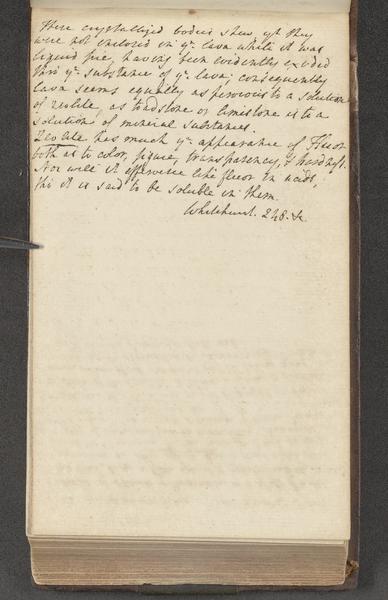 These crystallized bodies shew yt they
were not inclosed in ye lava while it was
liquid fire, having been evidently exuded
thro ye substance of ye lava; consequently
lava seems equally as pervious to a solution
of zeolite, as toadstone or limestone is to a
solution of mineral substances.
Zeolite has much ye appearance of Fluor
both as to color, figure, transparency, & hardness.
Nor will it effervesce like fluor in acids,
tho it is said to be soluble in them.
Whitehurst. 248. &c